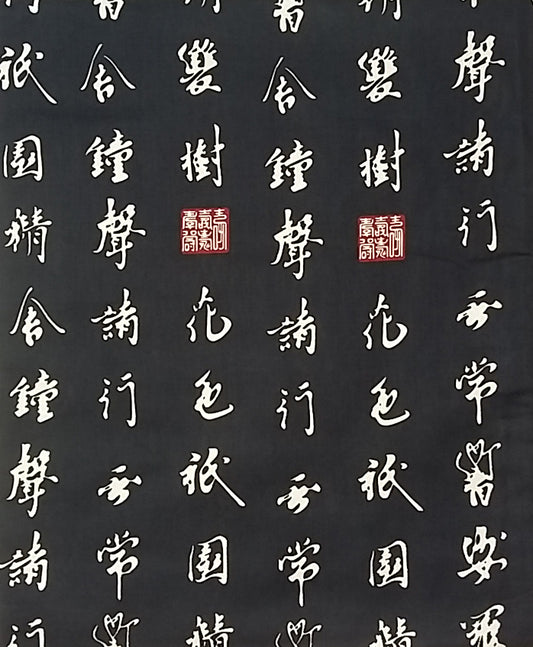 聲諸行無常響娑羅
雙樹花色祇園精
舎鐘聲諸行無常
雙樹花色祇園精
舎鐘聲諸行無常
祇園精舎鐘聲諸行